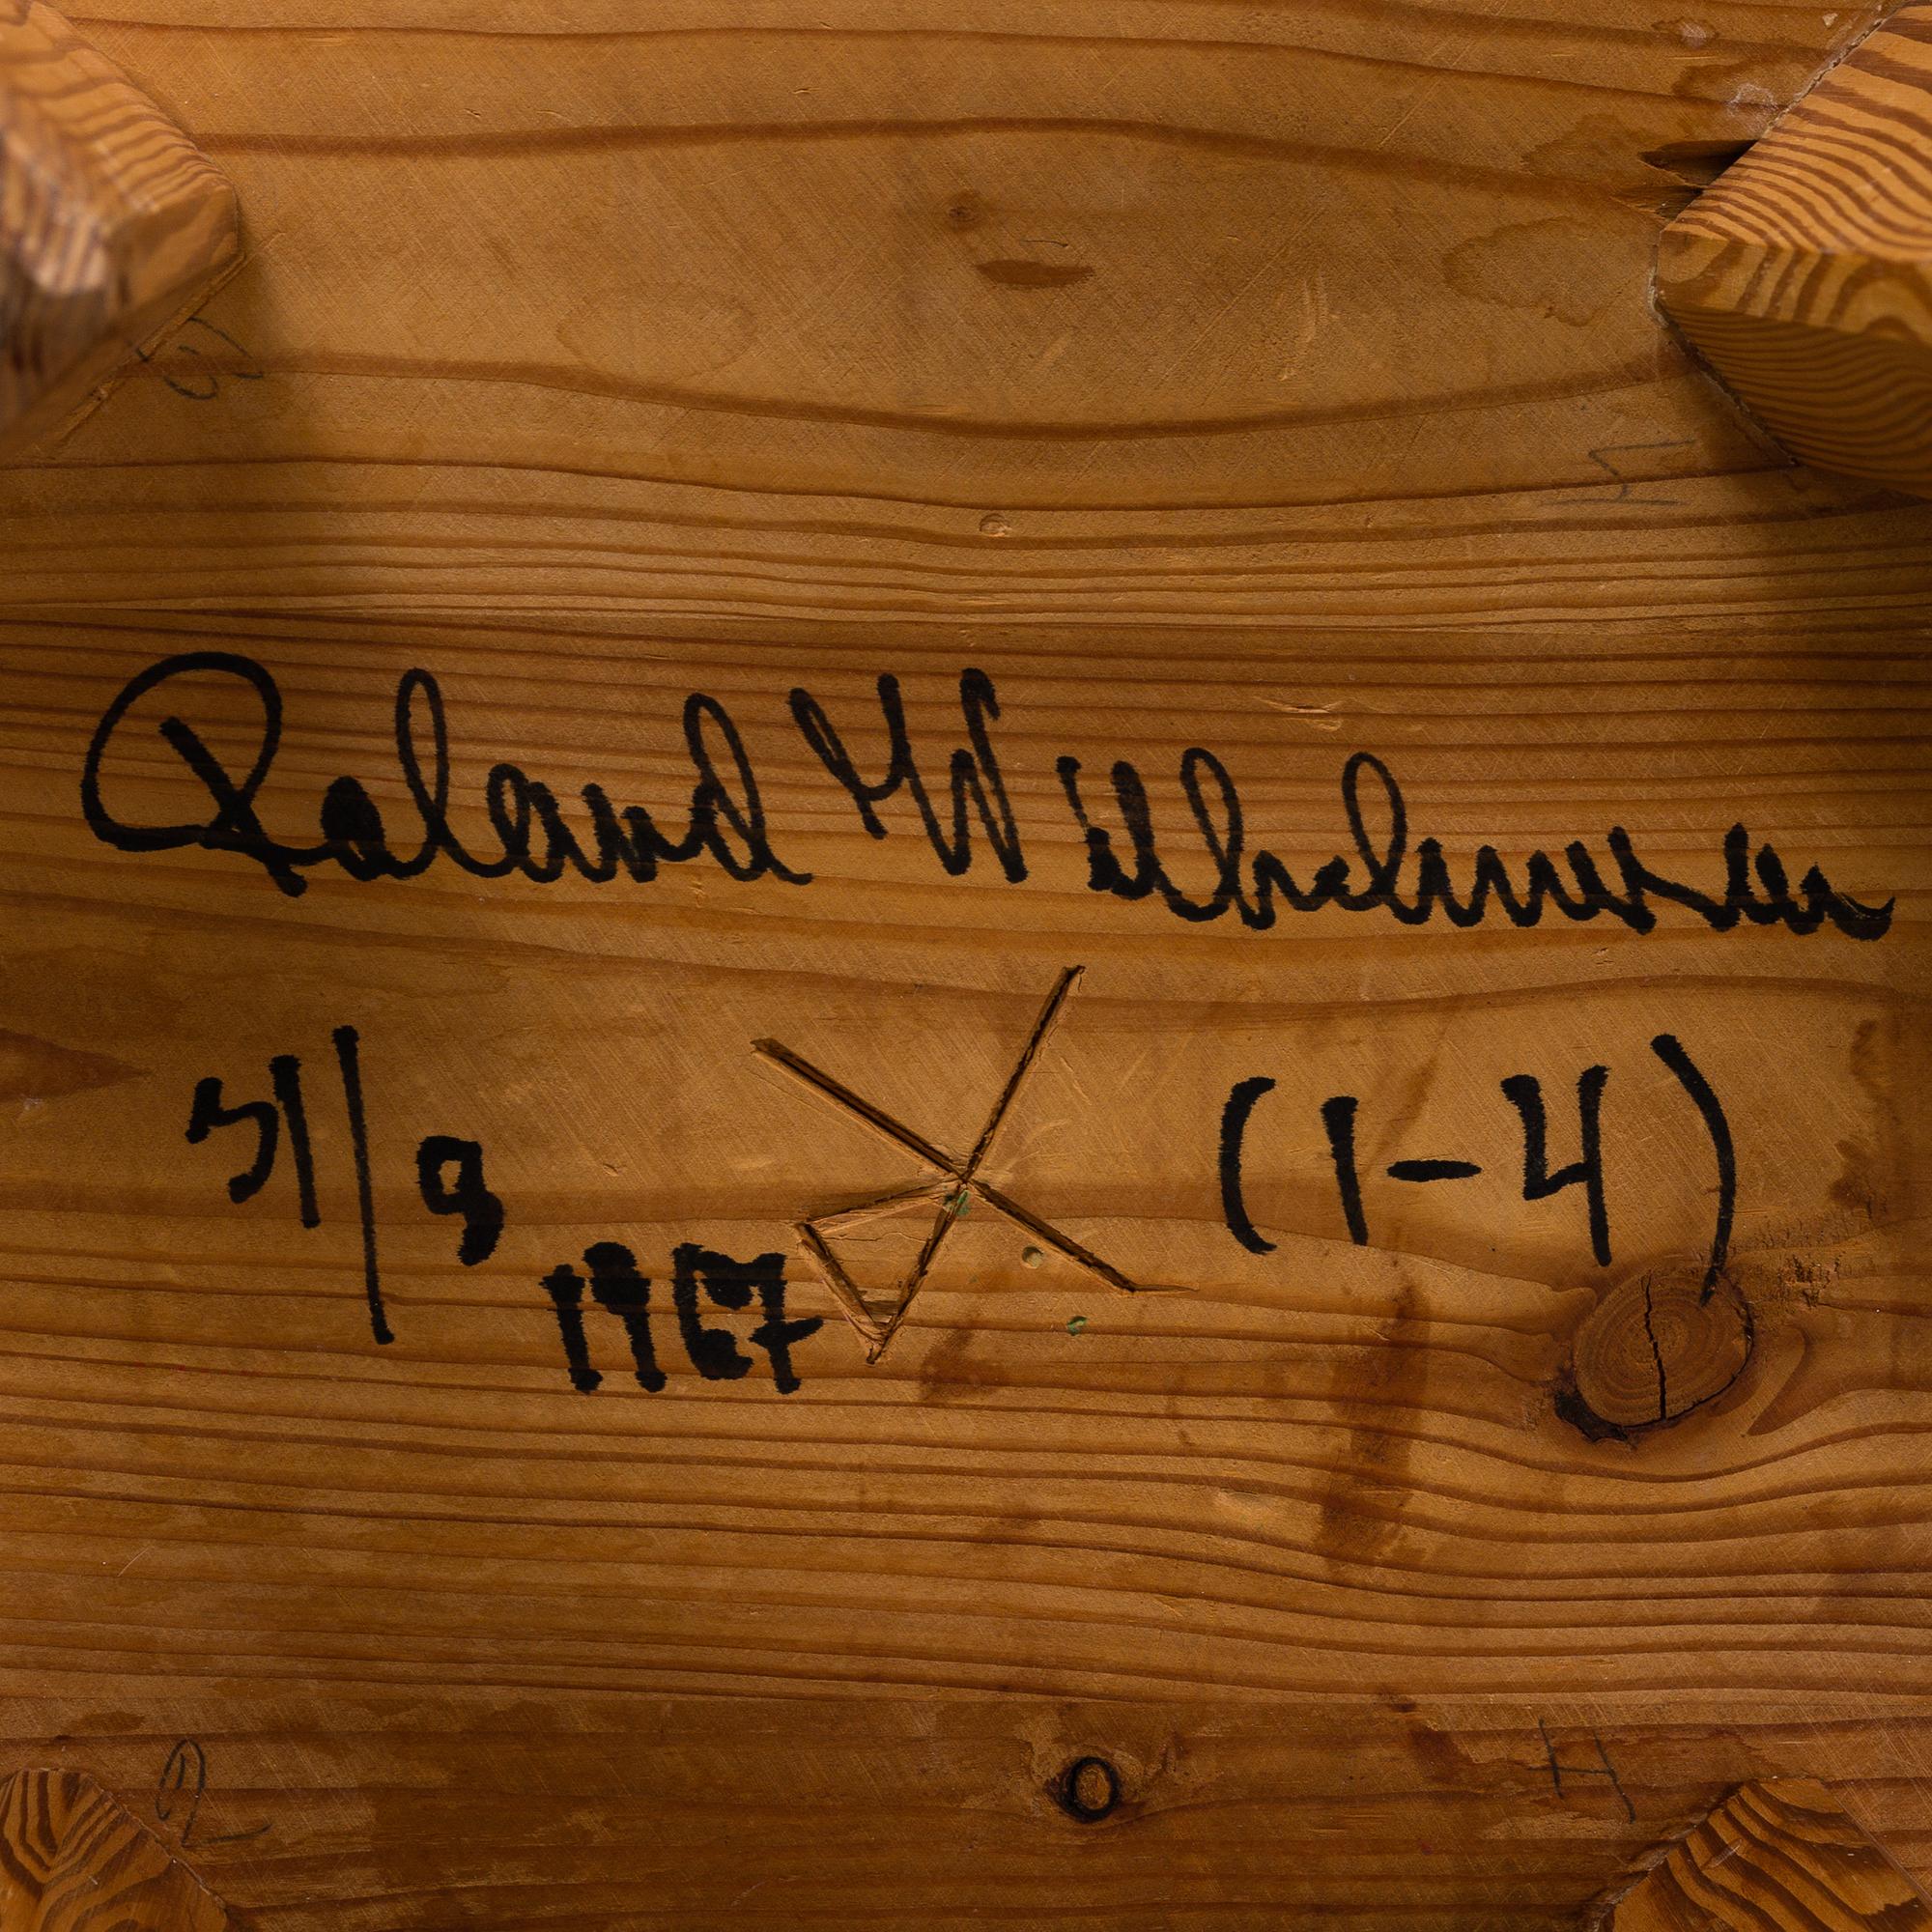 Roland Wilhelmsson
31/8
(1-4)
1967
2
4